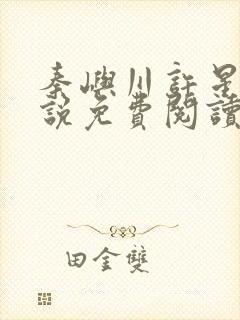 秦嶼川許星
說免費閱讀
田金雙